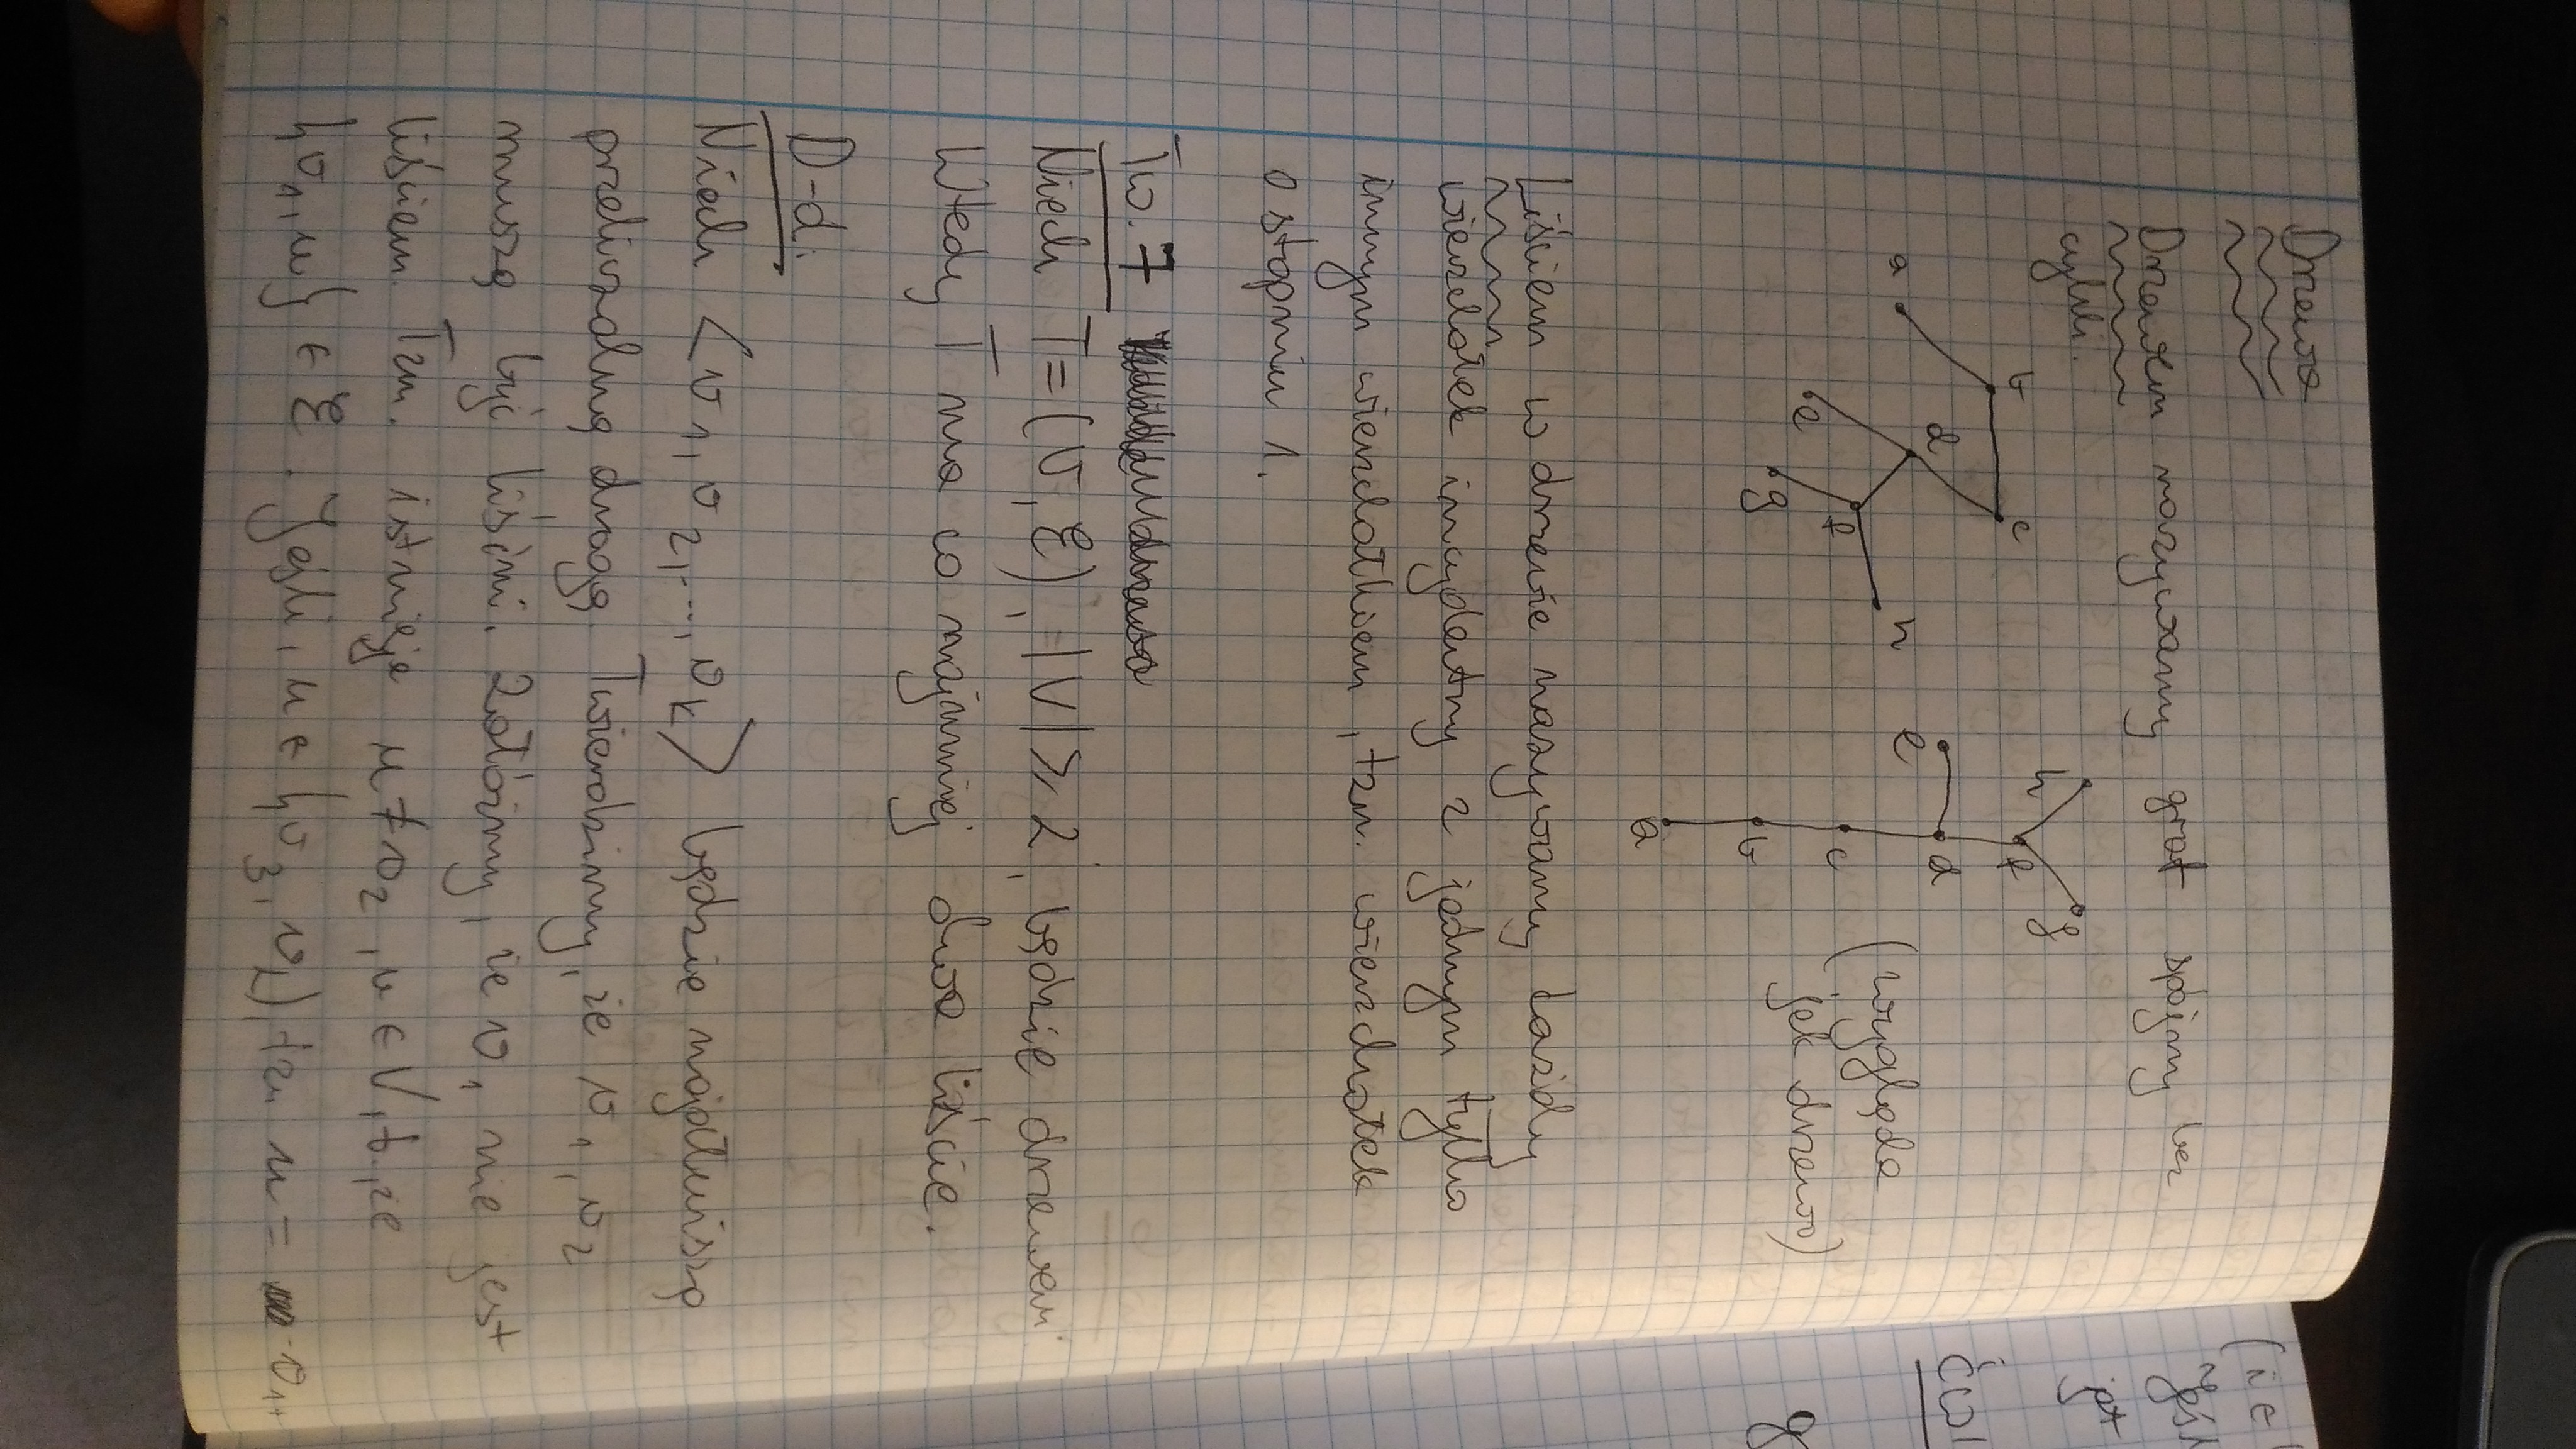 Drzewa
Drzewem nazywamy graf spójny bez
cykli.
b c
d
a h
e f
g
h g
f
e d
(wygląda
c
jak drzewo)
b
a
Liściem w drzewie nazywamy każdy
wierzchołek incydentny z jednym tylko
innym wierzchołkiem, tzn. wierzchołek
o stopniu 1.
Tw. 7
Niech T=(V,E), |V|≥2, będzie drzewem
Wtedy T ma co najmniej dwa liście.
D-d.
Niech <v1, v2,..., vk> będzie najdłuższą
drogą. Twierdzimy, że v1, v2
muszą być liśćmi. Załóżmy, że v1 nie jest
liściem. Tzn. istnieje u≠v2, u∈V, t.,że
{v1,u} ∈ E. Jeśli, u ∈ {v3, tzn u =
(i ∈
Jeśl
jst
ćwi
g